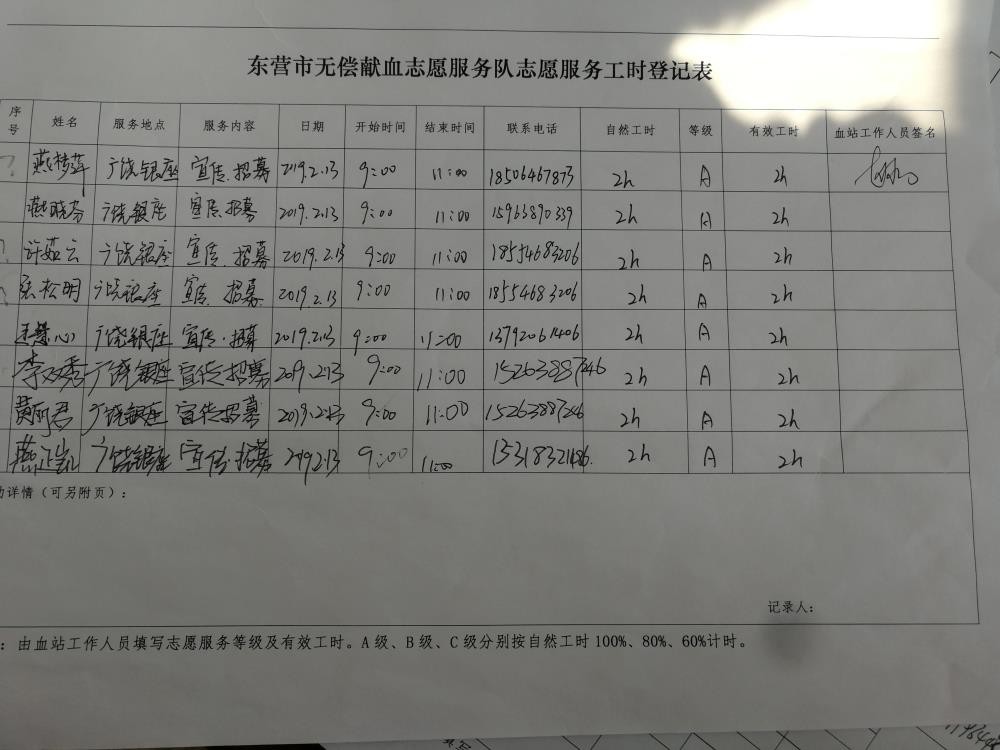 东营市无偿献血志愿服务队志愿服务工时登记表
序号 姓名 服务地点 服务内容 日期 开始时间 结束时间 联系电话 自然工时 等级 有效工时 血站工作人员签名
燕梦萍 广饶银座 宣传.招募 2019.2.13 9:00 11:00 18506467873 2h A 2h
燕晓芬 广饶银座 宣传.招募 2019.2.13 9:00 11:00 15963890339 2h A 2h
许茹云 广饶银座 宣传.招募 2019.2.13 9:00 11:00 18554683206 2h A 2h
张松明 广饶银座 宣传.招募 2019.2.13 9:00 11:00 18554683206 2h A 2h
王慧心 广饶银座 宣传.招募 2019.2.13 9:00 11:00 13792061406 2h A 2h
李双秀 广饶银座 宣传招募 2019.2.13 9:00 11:00 15263887246 2h A 2h
黄丽君 广饶银座 宣传招募 2019.2.13 9:00 11:00 15263887246 2h A 2h
燕正凯 广饶银座 宣传.招募 2019.2.13 9:00 11:00 15318321486. 2h A 2h
动详情（可另附页）：
记录人：
：由血站工作人员填写志愿服务等级及有效工时。A级、B级、C级分别按自然工时100%、80%、60%计时。